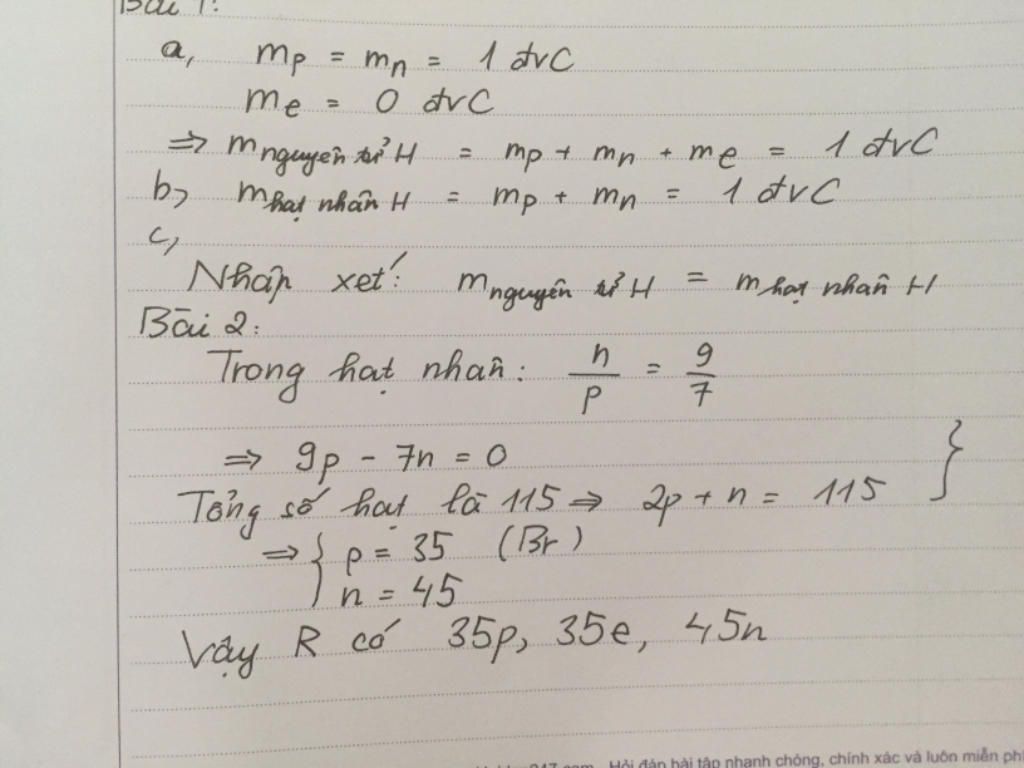 Bài 1:
a, mp = mn = 1 đvC
me = 0 đvC
=> mnguyên tử H = mp + mn + me = 1 đvC
b, mhạt nhân H = mp + mn = 1 đvC
c,
Nhận xét: mnguyên tử H = mhạt nhân H
Bài 2:
Trong hạt nhân: n/p = 9/7
=> 9p - 7n = 0
Tổng số hạt là 115 => 2p + n = 115 }
=> { p = 35 (Br)
n = 45
Vậy R có 35p, 35e, 45n
247.com - Hỏi đáp bài tập nhanh chóng, chính xác và luôn miễn ph